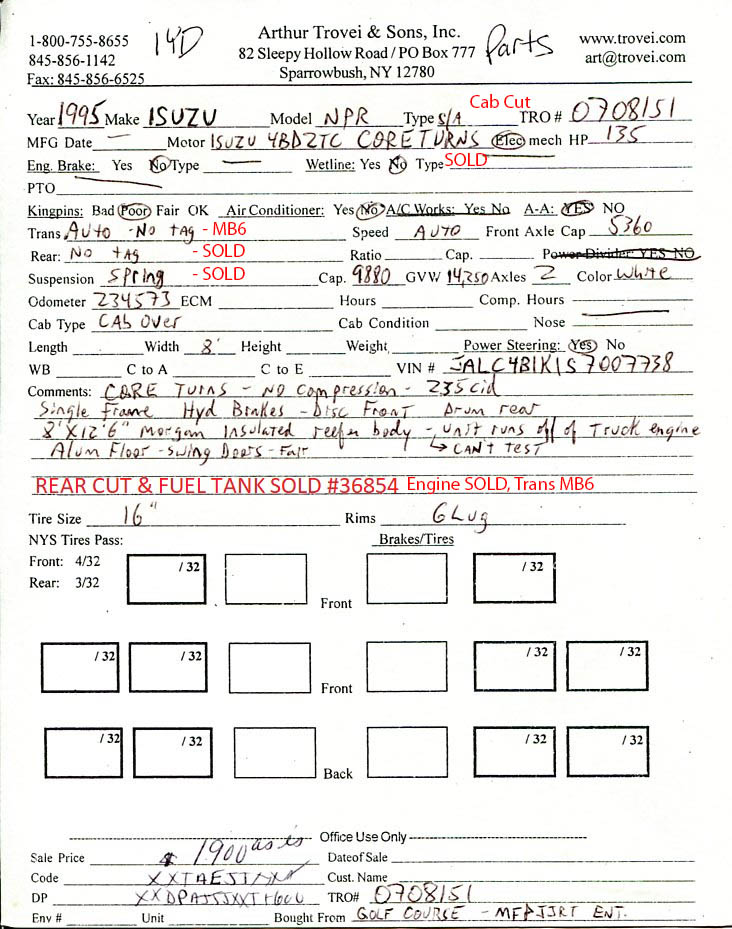 1-800-755-8655
845-856-1142
Fax: 845-856-6525
14'D
Arthur Trovei & Sons, Inc.
82 Sleepy Hollow Road / PO Box 777
Sparrowbush, NY 12780
Parts
www.trovei.com
art@trovei.com
Cab Cut
Year 1995 Make ISUZU Model NPR Type S/A TRO # 0708151
MFG Date — Motor ISUZU 4BD2TC CORE TURNS Elec mech HP 135
Eng. Brake: Yes No Type Wetline: Yes No Type SOLD
PTO
Kingpins: Bad Poor Fair OK Air Conditioner: Yes No A/C Works: Yes No A-A: YES NO
Trans Auto - No tag - MB6 Speed AUTO Front Axle Cap 5360
Rear: No tag - SOLD Ratio Cap. Power Divider: YES NO
Suspension Spring - SOLD Cap. 9880 GVW 14,250 Axles 2 Color White
Odometer 234573 ECM Hours Comp. Hours
Cab Type CAb Over Cab Condition Nose
Length Width 8' Height Weight Power Steering: Yes No
WB C to A C to E VIN # JALC4B1K1S7007738
Comments: CORE TURNS - NO Compression - 235 cid
Single frame Hyd Brakes - Disc Front Drum rear
8'X12'6" Morgan Insulated reefer body - unit runs off of Truck engine
Alum Floor - Swing Doors - Fair → CAN'T TEST
REAR CUT & FUEL TANK SOLD #36854 Engine SOLD, Trans MB6
Tire Size 16" Rims 6 Lug
NYS Tires Pass: Brakes/Tires
Front: 4/32
Rear: 3/32
/ 32 / 32
Front
/ 32 / 32 / 32 / 32
Front
/ 32 / 32 / 32 / 32
Back
Office Use Only
Sale Price $ 1900 as is Date of Sale
Code Cust. Name
DP TRO# 0708151
Env # Unit Bought From GOLF COURSE - ENT.